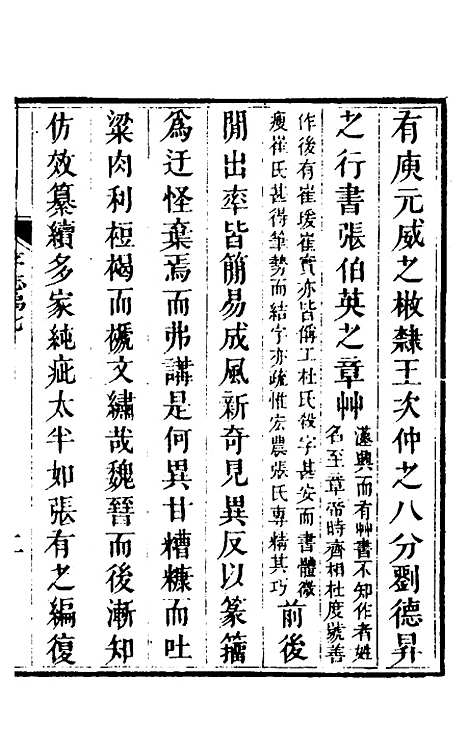 有庾元威之㪚隸王次仲之八分劉德昇
之行書張伯英之章艸
漢興而有艸書不知作者姓
名至章帝時齊相杜度號善
作後有崔瑗崔實亦皆稱工杜氏殺字甚安而書體微
瘦崔氏甚得筆勢而結字亦疏惟宏農張氏專精其巧
前後
閒出率皆簡易成風新奇見異反以篆籀
爲迂怪棄焉而弗講是何異甘糟糠而吐
粱肉利裋褐而褫文繡哉魏晉而後漸知
仿效纂續多家純疵太半如張有之編復
二